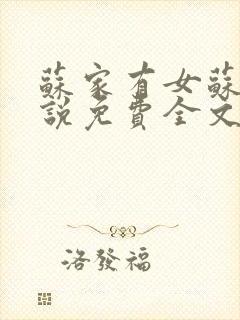 蘇家有女蘇
說免費全文
洛發福